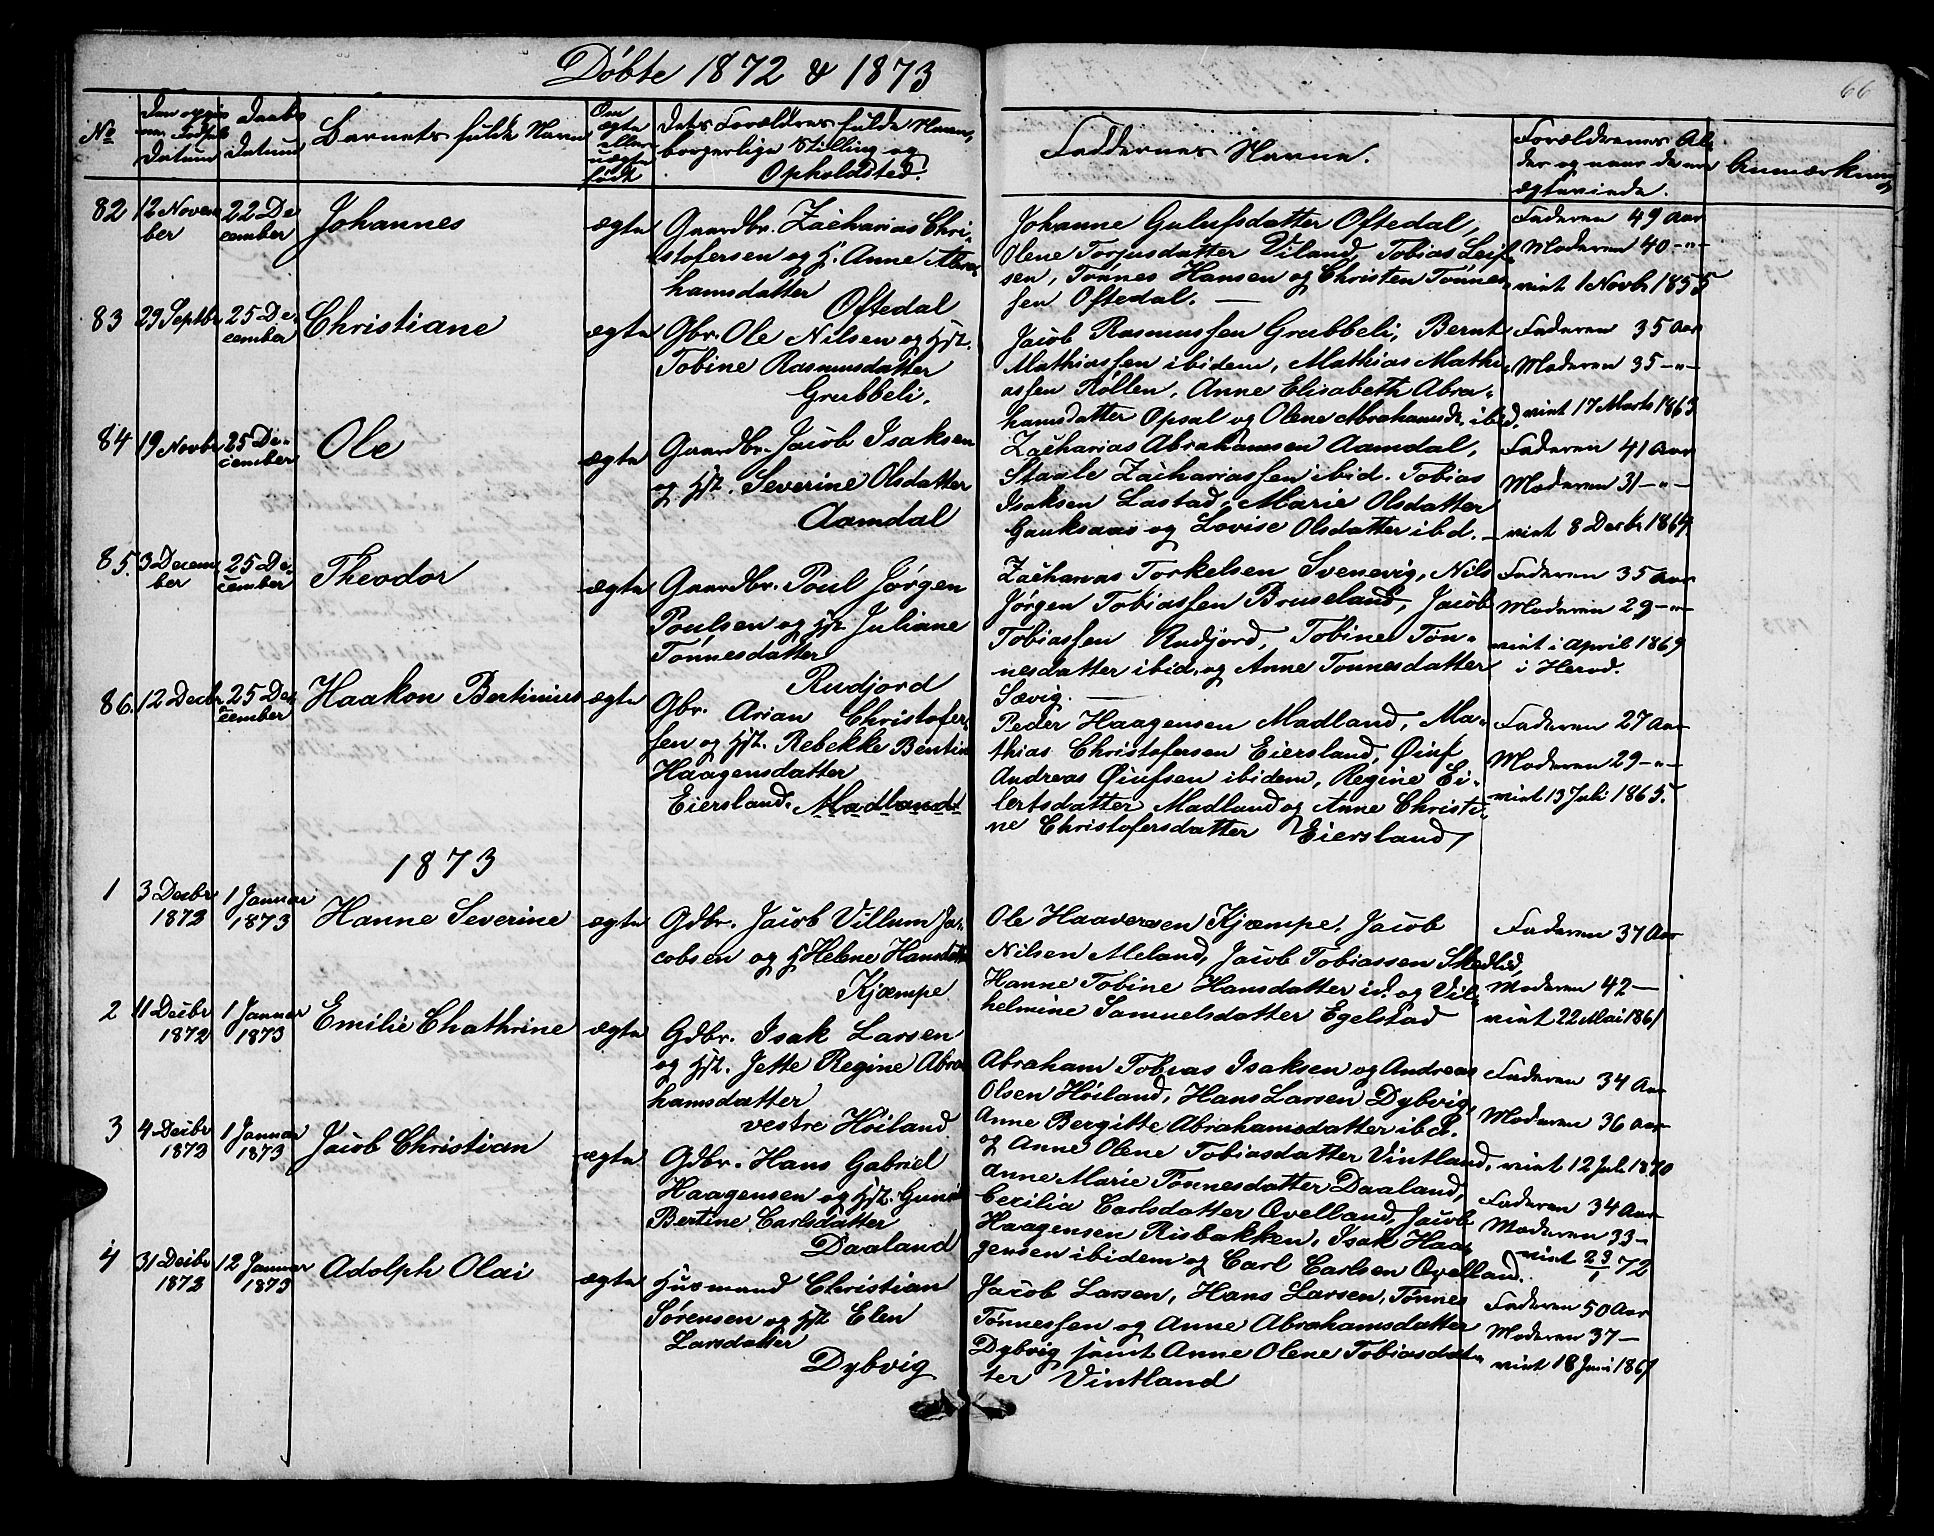 Döbte 1872 & 1873
66
No
Den opgivne Fødsels Datum
Daabs Datum
Barnets fulde Navn
Om ægte eller uægte født
Dets Forældres fulde Navn, borgerlige Stilling og Opholdsted.
Faddernes Navne.
Forældrenes Alder og naar de ere ægteviede.
Anmærkning
82
12 Novem
ber
22 De
cember
Johannes
ægte
Gaardbr. Zacharias Chri-
stofersen og H. Anne Abra-
hamsdatter
Oftedal
Johanne Gulufsdatter Oftedal,
Olene Torjusdatter Viland, Tobias Leif-
sen, Tønnes Hansen og Christen Tønnes-
sen Oftedal.
Faderen 49 Aar
Moderen 40 -"-
viet 1 Novb. 1855
83
29 Septbr
25 De-
cember
Christiane
ægte
Gbr. Ole Nilsen og Hst.
Tobine Rasmusdatter
Grubbeli.
Jacob Rasmussen Grubbeli, Bernt
Mathiassen ibidem, Mathias Mathi-
assen Rollen, Anne Elisabeth Abra-
hamsdatter Opsal og Olene Abrahamsdt. ibid.
Faderen 35 Aar
Moderen 35 -"-
viet 17 Marts 1863
84
19 Novbr
25 De-
cember
Ole
ægte
Gaardbr. Jacob Isaksen
og Hst. Severine Olsdatter
Aamdal
Zacharias Abrahamsen Aamdal,
Staale Zachariassen ibid. Tobias
Isaksen Lastad, Marie Olsdatter
Gauksaas og Lovise Olsdatter ibd.
Faderen 41 Aar
Moderen 31 -"-
viet 8 Decbr 1864
85.
3 Decem
ber
25 De-
cember
Theodor
ægte
Gaardbr. Poul Jørgen
Poulsen og Hst. Juliane
Tønnesdatter
Rudjord
Zacharias Torkelsen Svenevig, Nils
Jørgen Tobiassen Bruseland, Jacob
Tobiassen Rudjord, Tobine Tøn-
nesdatter ibid. og Anne Tønnesdatter
Sævig.
Faderen 35 Aar
Moderen 29 -"-
viet i April 1869
i Herod.
86.
12 Decbr
25 De-
cember
Haakon Bertinius
ægte
Gbr. Arian Christofer-
sen og Hst. Rebekke Bentine
Haagensdatter
Eiersland. Madland
Peder Haagensen Madland, Ma-
thias Christofersen Eiersland, Øiuf
Andreas Øiufsen ibidem, Regine Ei-
lertsdatter Madland og Anne Christi-
ne Christofersdatter Eiersland
Faderen 27 Aar
Moderen 29 -"-
viet 13 Juli 1865.
1873
1
3 Decbr
1872
1 Januar
1873
Hanne Severine
ægte
Gdbr. Jacob Villum Ja-
cobsen og H Helene Hansdatter
Kjæmpe
Ole Haaversen Kjæmpe, Jacob
Nilsen Meland, Jacob Tobiassen
Hanne Tobine Hansdatter id. og Vil-
helmine Samuelsdatter Egelstad
Faderen 37 Aar
Moderen 42 -
viet 22 Mai 1861
2
11 Decbr
1872
1 Januar
1873
Emilie Chathrine
ægte
Gdbr. Isak Larsen
og Hst. Jette Regine Abra-
hamsdatter
vestre Høiland
Abraham Tobias Isaksen og Andreas
Olsen Høiland, Hans Larsen Dybvig,
Anne Bergitte Abrahamsdatter ibd.
og Anne Olene Tobiasdatter Vintland,
Faderen 34 Aar
Moderen 36 Aar
viet 12 Juli 1870
3
4 Decbr
1872
1 Januar
1873
Jacob Christian
ægte
Gdbr. Hans Gabriel
Haagensen og Hst. Gunild
Bertine Carlsdatter
Daaland
Anne Marie Tønnesdatter Daaland,
Cecilia Carlsdatter Qvelland, Jacob
Haagensen Risbakken, Isak Haa-
gensen ibidem og Carl Carlsen Qvelland.
Faderen 34 Aar
Moderen 33 -
viet 23/1 72
4
31 Decbr
1872
12 Januar
1873
Adolph Olai
ægte
Husmand Christian
Sørensen og Hst Elen
Larsdatter
Dybvig
Jacob Larsen, Hans Larsen, Tønnes
Tønnessen og Anne Abrahamsdatter
Dybvig samt Anne Olene Tobiasdat-
ter Vintland
Faderen 50 Aar
Moderen 37 -
viet 18 Juni 1861